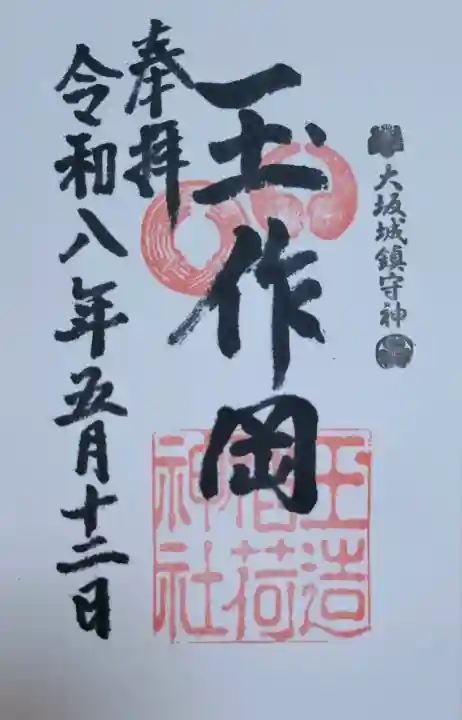 大坂城鎮守神
玉作岡
奉拝
令和八年五月十二日
玉造
稲荷
神社